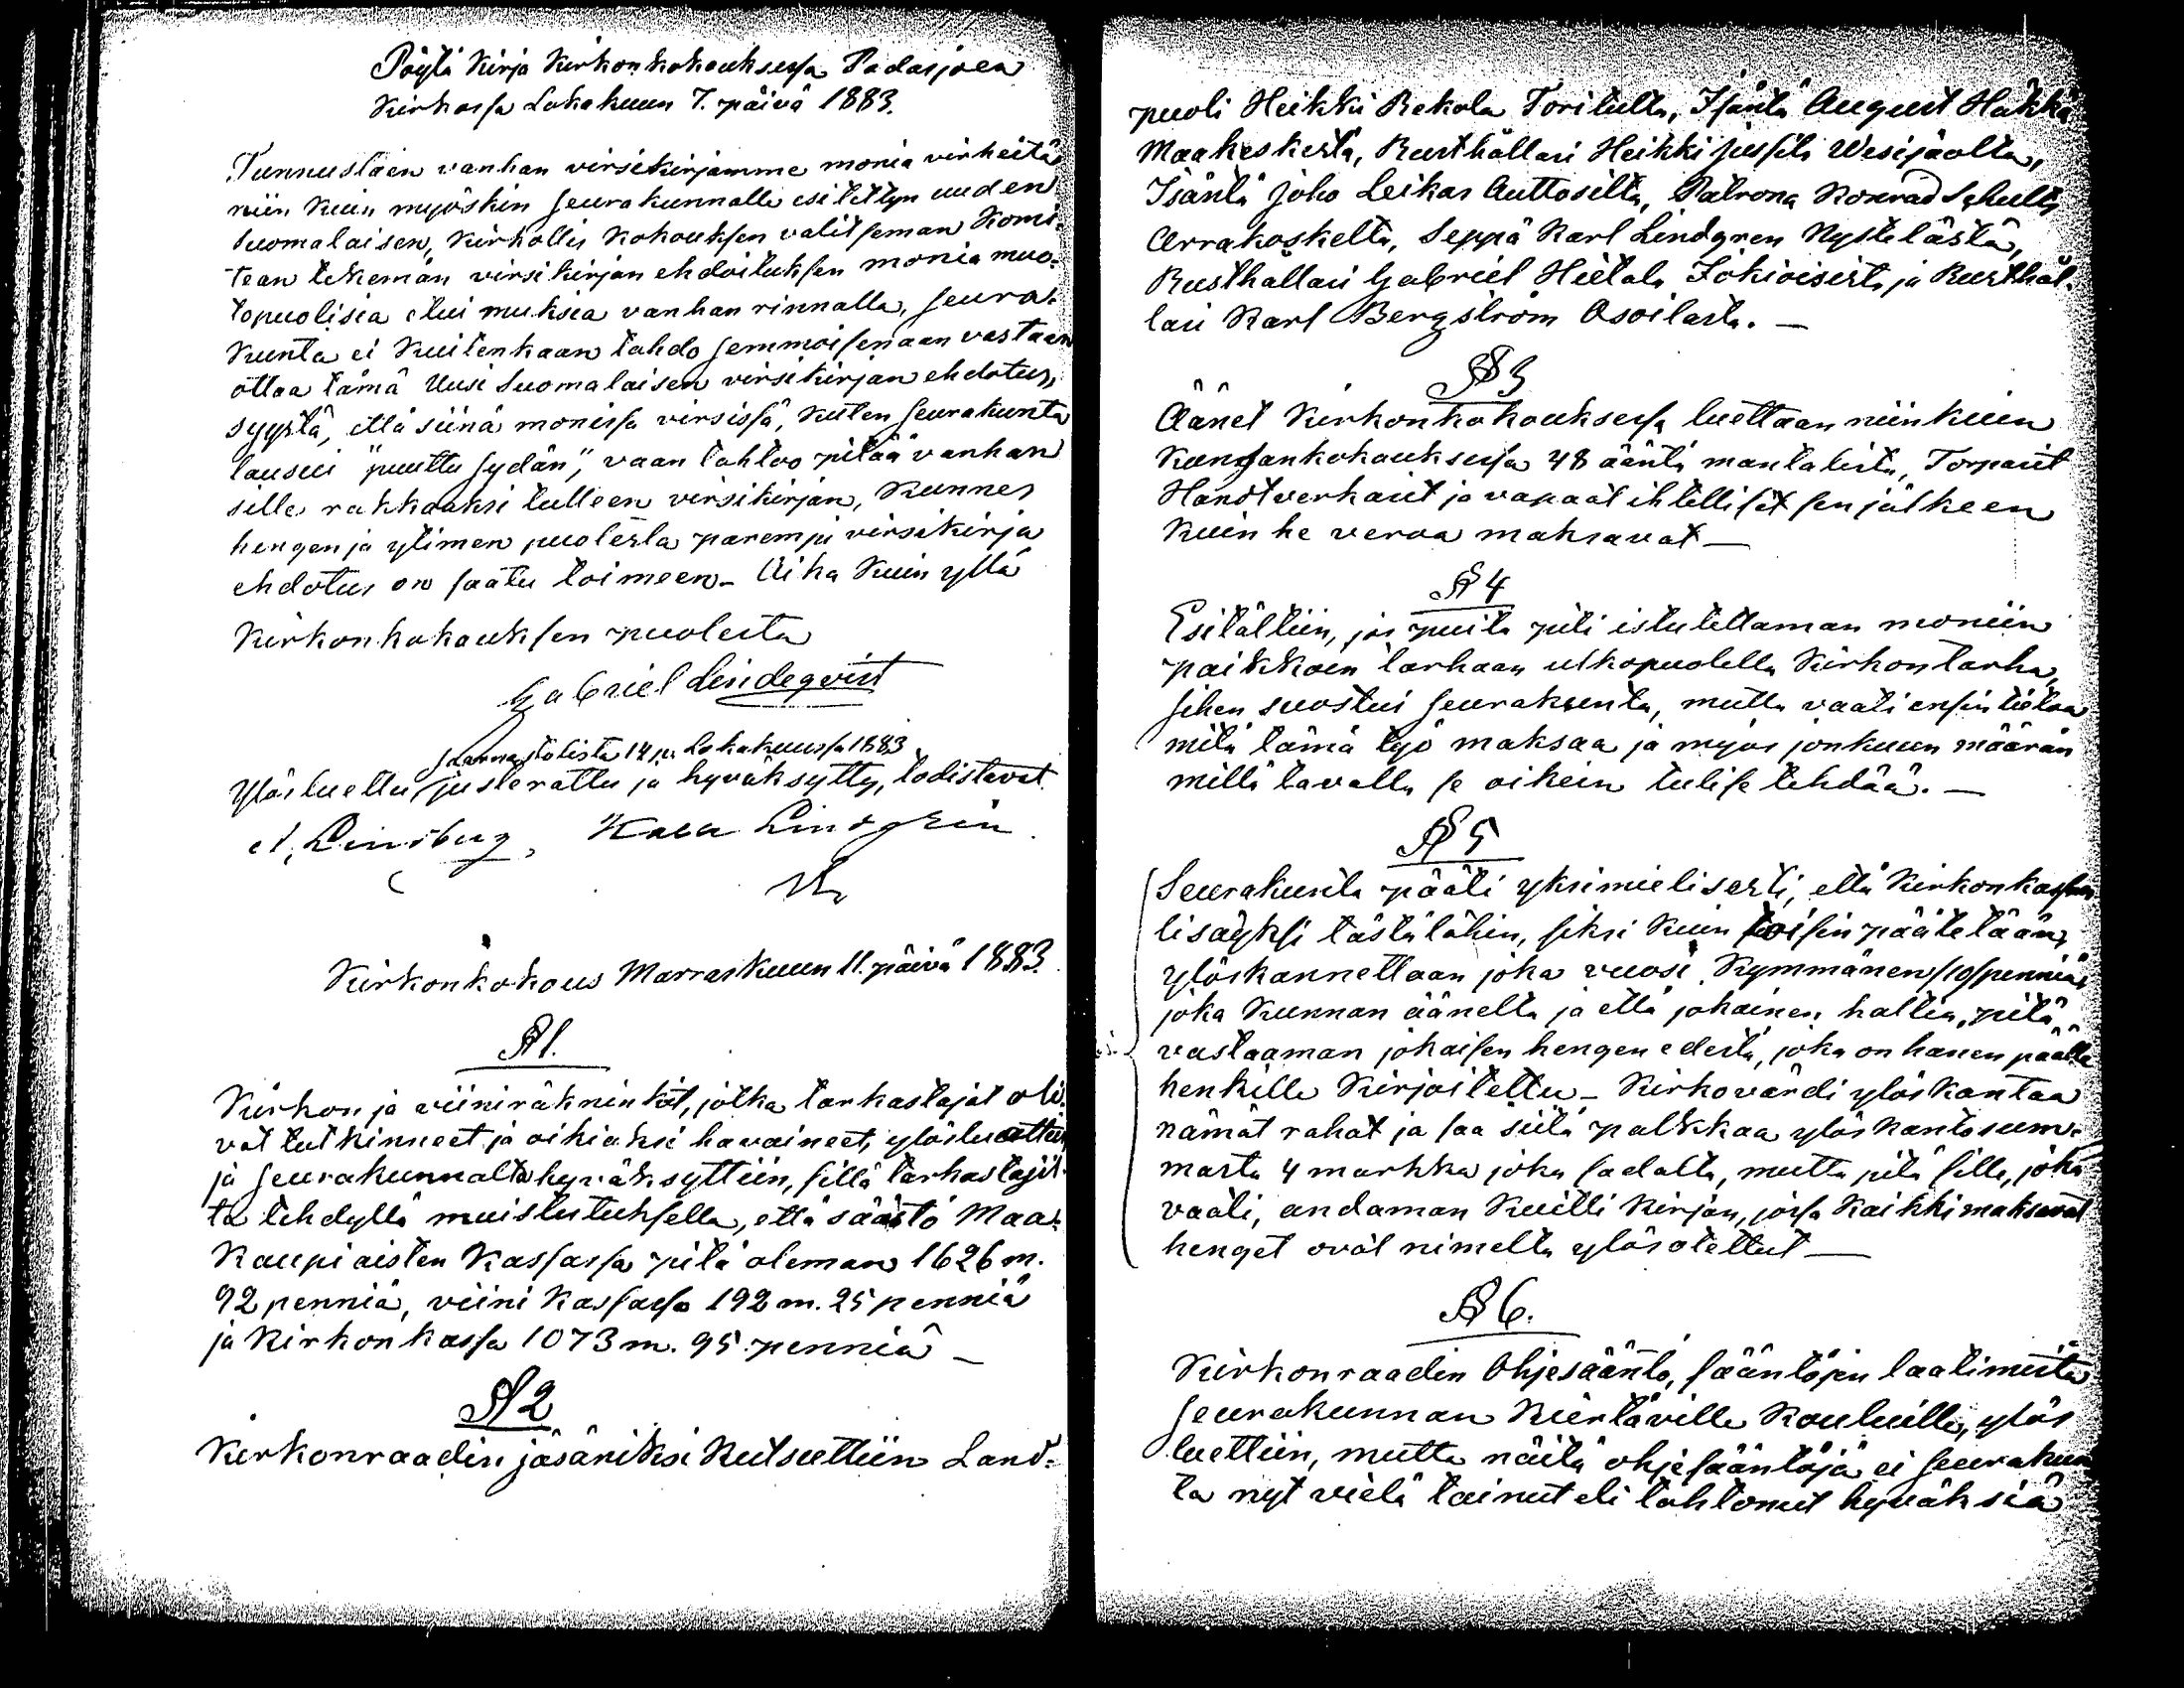 Pöytä Kirja Kirkonkokouksessa Padasjoen
Kirkossa Lokakuun 7. päivä 1883.
Tunnustaen vanhan virsikirjamme monia virheitä,
niin kuin myöskin seurakunnalle esitettyn uuden
Suomalaisen, Kirkollis Kokouksen valitseman Komi-
tean tekemän virsikirjan ehdoituksen monia muo-
topuolisia etuimuksia vanhan rinnalla, seura-
kunta ei kuitenkaan tahdo semmoisenaan vastaan
ottaa tämä Uusi Suomalaisen virsikirjan ehdotus,
syystä, että siinä monissa virsissä, kuten seurakunta
lausui "puuttu sydän", vaan tahtoo pitää vanhan
sille rakkaaksi tulleen virsikirjan, kunnes
hengen ja ytimen puolesta parempi virsikirja
ehdotus on saatu toimeen. Aika kuin yllä
Kirkonkokouksen puolesta
Gabriel Lindeqvist
Saarnastolista 14 p. Lokakuussa 1883
Ylösluettu justerattu ja hyväksytty, todistavat.
Lindgrén
Kirkonkokous Marraskuun 11. päivä 1883.
§ 1.
Kirkon ja viiniräkninkit, jotka tarkastajat oli-
vat tutkinneet ja oikiaksi havaineet, ylösluettiin,
ja seurakunnalta hyväksyttiin, sillä tarkastajil-
ta tehdyllä muistutuksella, että säästö Maa-
Kaupiaisten Kassassa pitä oleman 1626 m.
92 penniä, viini Kassassa 192 m. 25 penniä
ja Kirkon kassa 1073 m. 95 penniä —
§ 2
Kirkonraadin jäsäniksi kutsuttiin Land-
puoli Heikki Rekola Toritulta, Isäntä August Häkkä
Maakeskestä, Rusthållari Heikki Jussila Wesijaolta,
Isäntä Joho Leikas Auttosilta, Patrona Konrad Schultz
Arrakoskelta, Seppä Karl Lindgren Nystelästä,
Rusthållari Gabriel Hietala Jokioisista ja Rusthål-
lari Karl Bergström Osoilasta. —
§ 3
Äänet Kirkonkokouksessa luettaan niinkuin
Kunnankokouksessa 48 ääntä mantalista, Torparit
Handtverkarit ja vapaat ihtelliset sen jälkeen
kuin he veroa maksavat —
§ 4
Esitältiin, jos puita piti istutettaman moniin
paikkoin tarhaan ulkopuolella Kirkontarha,
sihen suostui seurakunta, mutta vaati ensin tietaa
mitä tämä työ maksaa ja myös jonkuun määrän
millä tavalla se oikein tulise tehdää. —
§ 5
Seurakunta pääti yksimielisesti, että Kirkonkassan
lisäyksi tästälähin, siksi kuin toisin päätetään,
ylöskannettaan joka vuosi Kymmänen /10/ penniä,
joka kunnan äänelta ja että johainen haltia, pitä
vastaaman johaisen hengen edestä, joka on hanen päälle
henkille kirjoitettu — Kirkovärdi ylöskantaa
nämät rahat ja saa siitä palkkaa ylöskantosum-
masta 4 markka joka sadalta, mutta pitä sille, joka
vaati, andaman kuitti kirjan, jossa kaikki maksavat
henget ovat nimelta ylösotettut —
§ 6.
Kirkonraadin Ohjesääntö, sääntöjen laatimista
seurakunnan kiertäville kouluille, ylös
luettiin, mutta näitä ohjesääntöjä ei seurakun
ta nyt vielä tainut eli tahtonut hyväksiä